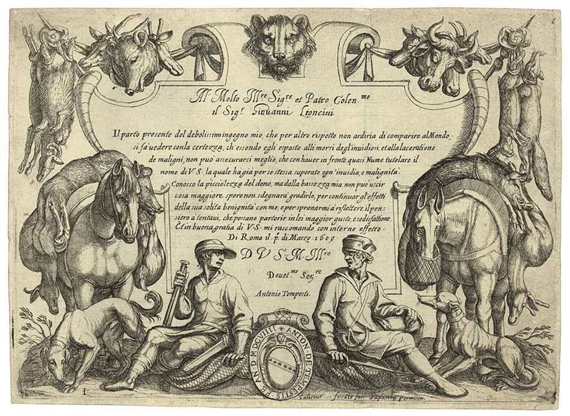 Al Molto Ill.re Sig.re et Patro Colen.mo
il Sig.r Giovanni Leoncini
Il parto presente del debolissimo ingegno mio, che per altro rispetto non ardiria di comparire al Mondo,
si fà vedere con la certezza, ch'essendo egli esposto alli morsi degl'invidiosi et alla laceratione
de maligni, non può assicurarsi meglio, che con haver in fronte quasi Nume tutelare il
nome di V.S. la quale ha già per se stessa superato ogn'invidia, e malignità.
Conosco la picciolezza del dono, ma dalla bassezza mia non può uscir
cosa maggiore. però non sdegnarà gradirlo, per continuar gl'effetti
della sua solita benignità con me, e per spronarmi à riflettere il pen-
siero a tentativi, che possano partorir in lei maggior gusto, e sodisfattione.
Et in buona gratia di V.S. mi raccomando con interno effetto.
Di Roma il p.o di Marzo 1609
D V S M Ill.re
Devot.mo Ser.re
Antonio Tempesti.
AN. D. MDCVIII
ANTON
1